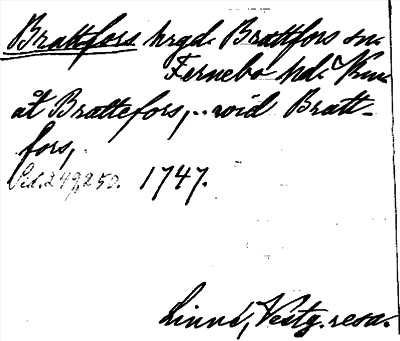 Brattfors hrgd. Brattfors sn.
Fernebo hd. Vrm.
åt Brattefors, .. vid Bratt-
fors,
Sid. 249, 250. 1747.
Linné, Vestg. resa.